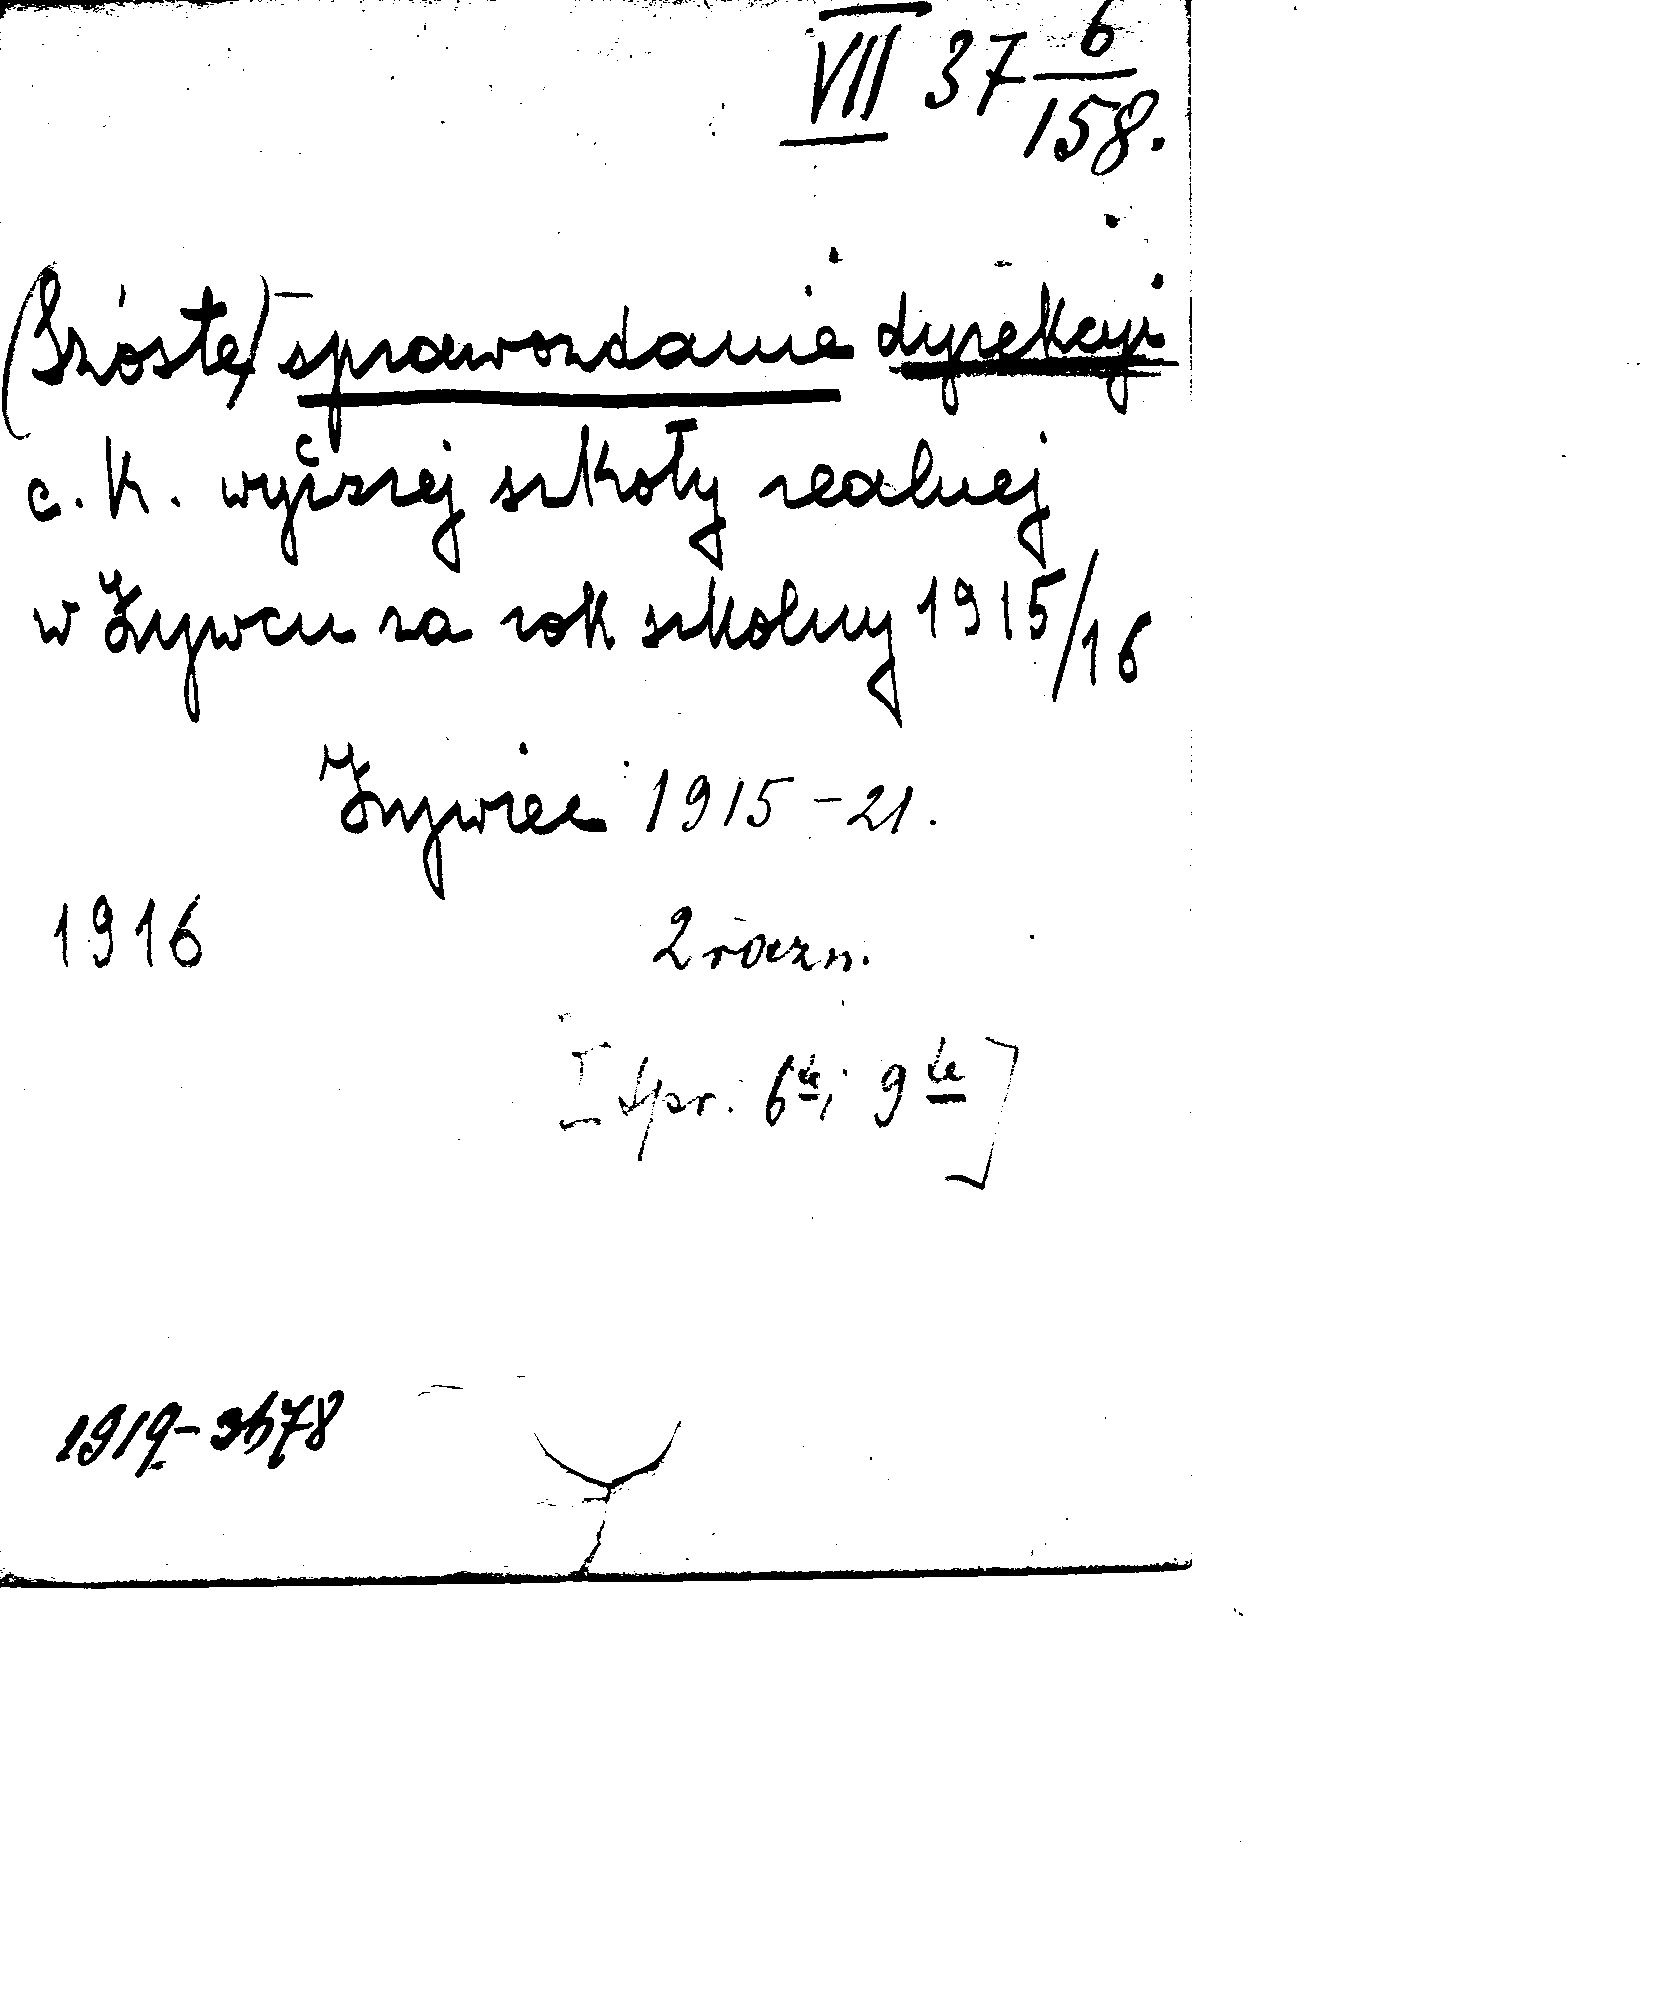 VII 37 6/158.
(Szóste) sprawozdanie dyrekcyi
c. k. wyższej szkoły realnej
w Żywcu za rok szkolny 1915/16
Żywiec 1915-21.
1916 2 roczn.
[Spr. 6te i 9te]
1919-3678